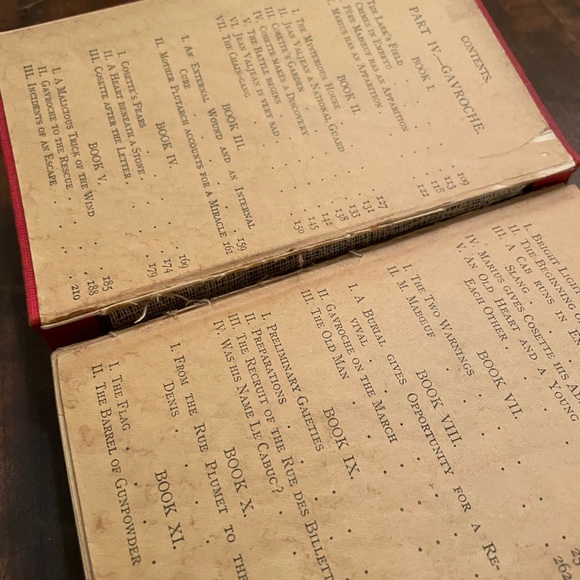 CONTENTS.
PART IV.—GAVROCHE.
BOOK I.
THE LARK'S FIELD . . . 109
CRIMES IN EMBRYO . . . 113
PÈRE MABŒUF HAS AN APPARITION . . 118
V. MARIUS HAS AN APPARITION . . . 122
BOOK II.
I. THE MYSTERIOUS HOUSE . . . 127
II. JEAN VALJEAN A NATIONAL GUARD . . 131
III. COSETTE'S GARDEN . . . 133
IV. COSETTE MAKES A DISCOVERY . . . 138
V. THE BATTLE BEGINS . . . 142
VI. JEAN VALJEAN IS VERY SAD . . . 145
VII. THE CHAIN-GANG . . . 150
BOOK III.
I. AN EXTERNAL WOUND AND AN INTERNAL
CURE . . . 159
II. MOTHER PLUTARCH ACCOUNTS FOR A MIRACLE 161
BOOK IV.
I. COSETTE'S FEARS . . . 169
II. A HEART BENEATH A STONE . . . 174
III. COSETTE AFTER THE LETTER . . . 179
BOOK V.
I. A MALICIOUS TRICK OF THE WIND . . . 185
II. GAVROCHE TO THE RESCUE . . . 188
III. INCIDENTS OF AN ESCAPE . . . 210
I. BRIGHT LIGHT
II. THE BEGINNING OF
III. A CAB RUNS IN EN
SLANG
IV. MARIUS GIVES COSETTE HIS AD
V. AN OLD HEART AND A YOUNG
EACH OTHER
BOOK VII.
I. THE TWO WARNINGS
II. M. MABŒUF
BOOK VIII.
I. A BURIAL GIVES OPPORTUNITY FOR A RE-
VIVAL
II. GAVROCHE ON THE MARCH
III. THE OLD MAN
BOOK IX.
I. PRELIMINARY GAIETIES
II. PREPARATIONS
III. THE RECRUIT OF THE RUE DES BILLETT
IV. WAS HIS NAME LE CABUC?
BOOK X.
I. FROM THE RUE PLUMET TO THE
DENIS
BOOK XI.
I. THE FLAG
II. THE BARREL OF GUNPOWDER